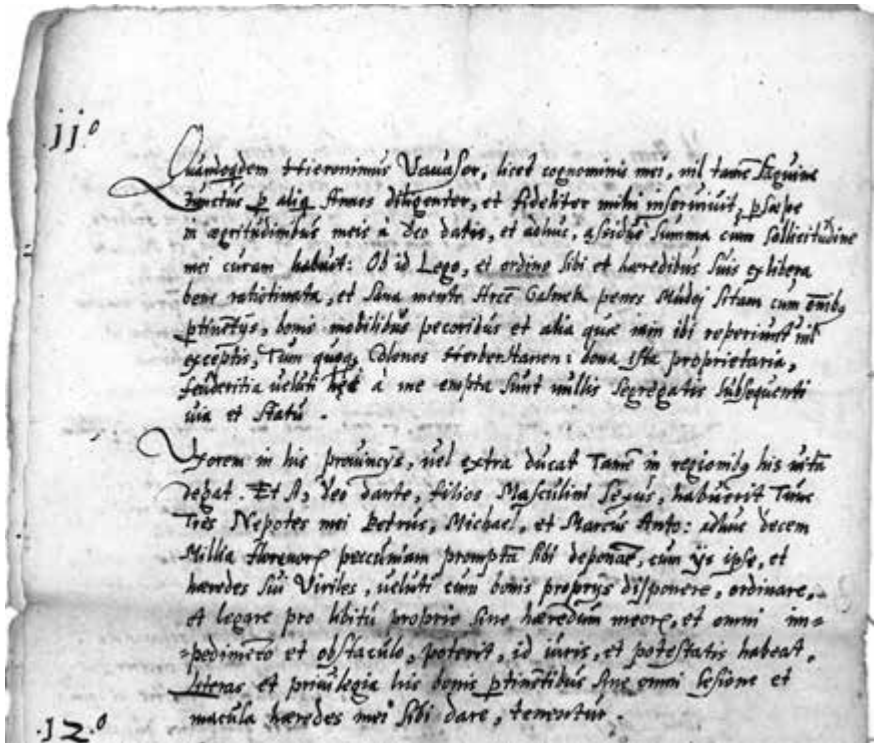 .jj.o
Quandoqdem Hieronimus Vauasor, licet cognominis mei, nil tame Saguine
Iunctus p aliq Annos diligenter, et fideliter mihi inseruiuit, psæpe
in ægritudinibus meis à Deo datis, et adhuc, assidue Summa cum Sollicitudine
mei curam habuit: Ob id Lego, et ordino Sibi et hæredibus Suis ex libera
bene ratiotinata, et Sana mente Arcē Galnek penes Sitam cum oīnibq
ptinētys, bonis mobilibus pecoribus et alia quæ iam ibi reperiunt nil
exceptis, Tum quoq Colonos bona ista proprietaria,
ueluti à me empta Sunt nullis Segregatis Subsequenti
uia et Statu.
Vxorem in his prouincys, uel extra ducat Tame in regionibq his uitā
degat. Et A, Deo dante, filios Masculini Sexus, habuerit Tunc
Tres Nepotes mei Petrus, Michael, et Marcus Anto: adhuc decem
Millia florenor peccuniam promptā Sibi deponāt, cum ys ipse, et
hæredes Sui Viriles, ueluti cum bonis proprys disponere, ordinare,
et legare pro libitu proprio Sine hæredum meor, et omni im=
=pedimēto et obstaculo, poterit, id iuris, et potestatis habeat,
Literas et priuilegia his bonis ptinētibus Sine omni lesione et
macula hæredes mei Sibi dare, tenentur.
.12.o